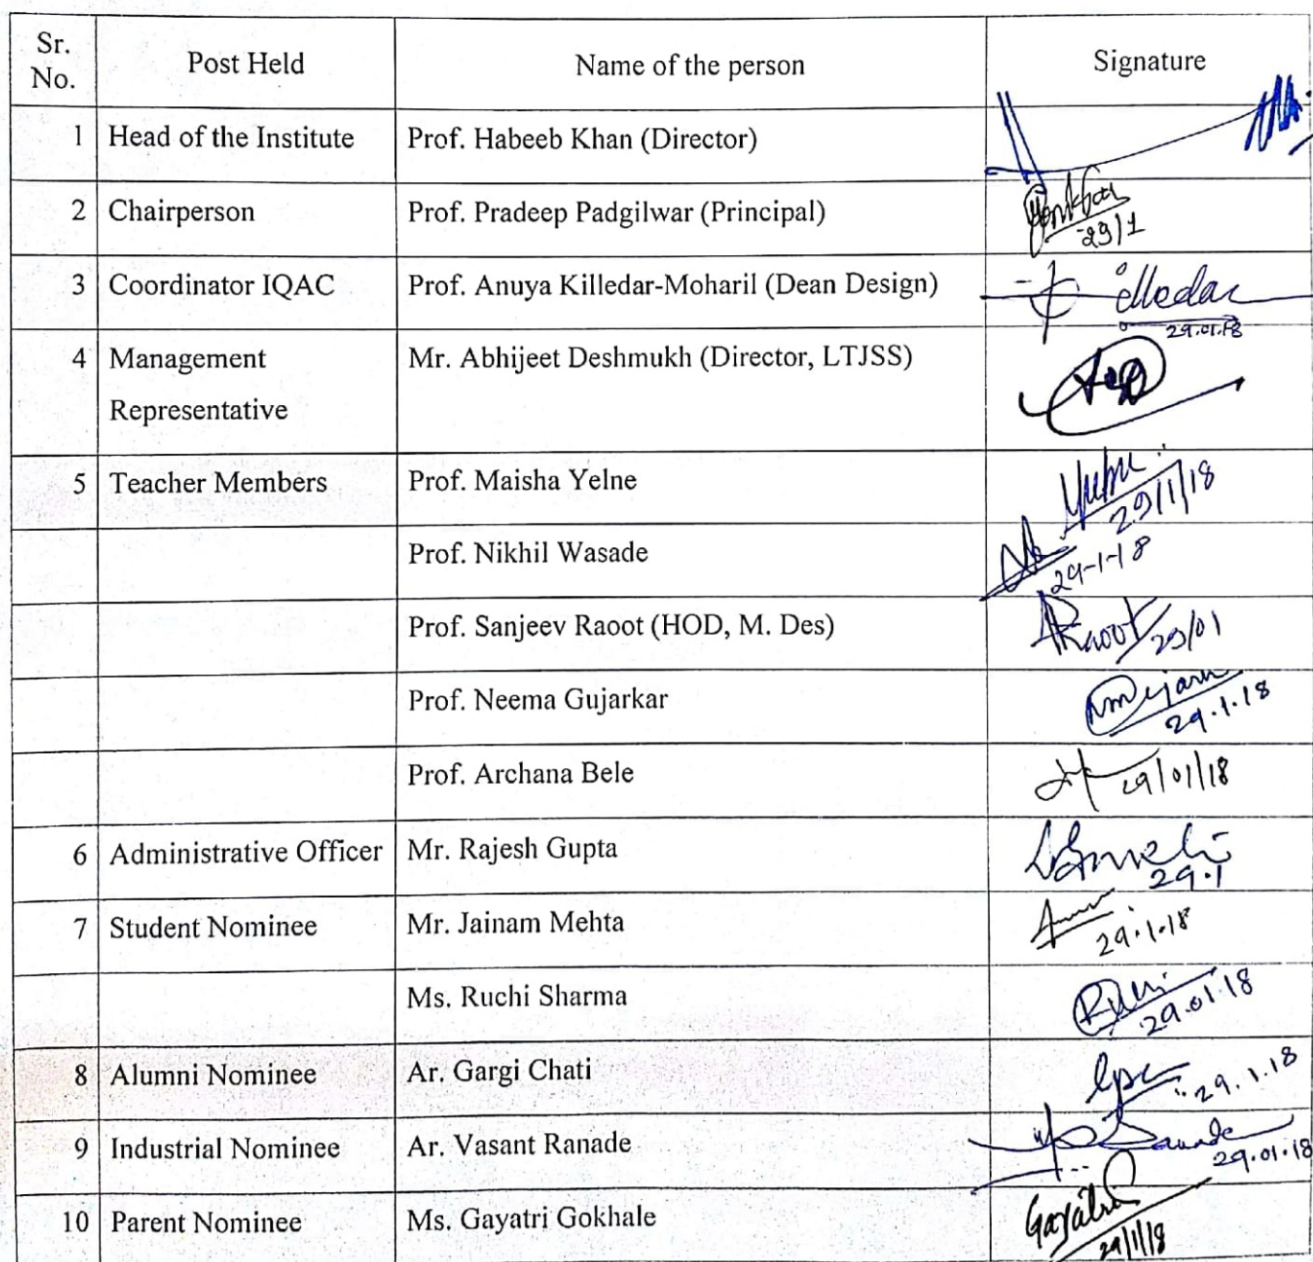 Sr. No. Post Held Name of the person Signature
1 Head of the Institute Prof. Habeeb Khan (Director)
2 Chairperson Prof. Pradeep Padgilwar (Principal)
29/1
3 Coordinator IQAC Prof. Anuya Killedar-Moharil (Dean Design)
29.01.18
4 Management Mr. Abhijeet Deshmukh (Director, LTJSS)
Representative
5 Teacher Members Prof. Maisha Yelne
29/1/18
Prof. Nikhil Wasade
29-1-18
Prof. Sanjeev Raoot (HOD, M. Des) Raoot 29/01
Prof. Neema Gujarkar
29.1.18
Prof. Archana Bele 29/01/18
6 Administrative Officer Mr. Rajesh Gupta
29.1
7 Student Nominee Mr. Jainam Mehta
29.1.18
Ms. Ruchi Sharma
29.01.18
8 Alumni Nominee Ar. Gargi Chati 29.1.18
9 Industrial Nominee Ar. Vasant Ranade
29.01.18
10 Parent Nominee Ms. Gayatri Gokhale Gayatri
29/1/18